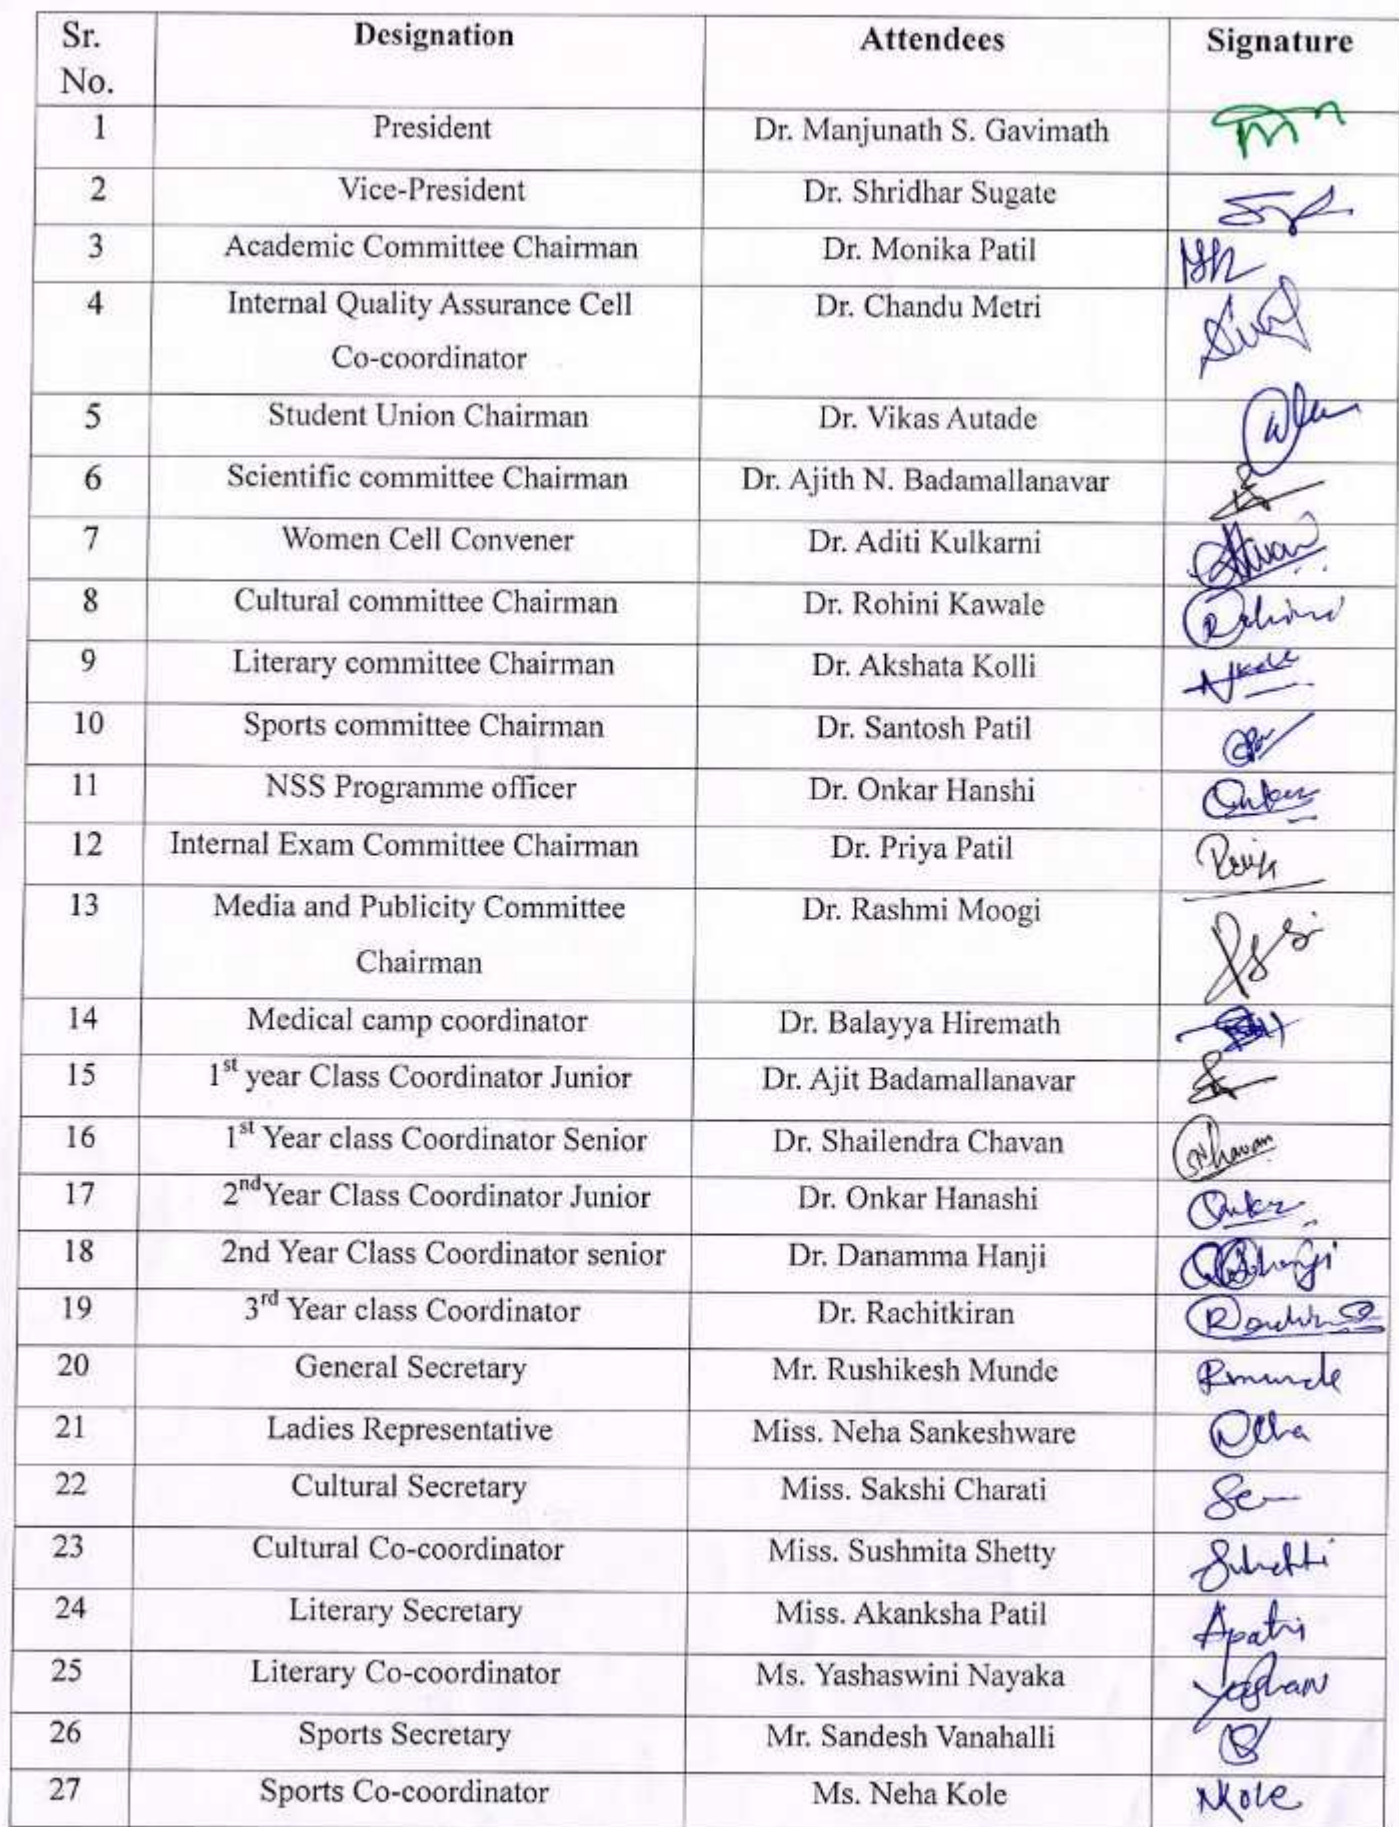 Sr. No. Designation Attendees Signature
1 President Dr. Manjunath S. Gavimath
2 Vice-President Dr. Shridhar Sugate
3 Academic Committee Chairman Dr. Monika Patil
4 Internal Quality Assurance Cell Dr. Chandu Metri
Co-coordinator
5 Student Union Chairman Dr. Vikas Autade
6 Scientific committee Chairman Dr. Ajith N. Badamallanavar
7 Women Cell Convener Dr. Aditi Kulkarni
8 Cultural committee Chairman Dr. Rohini Kawale
9 Literary committee Chairman Dr. Akshata Kolli
10 Sports committee Chairman Dr. Santosh Patil
11 NSS Programme officer Dr. Onkar Hanshi
12 Internal Exam Committee Chairman Dr. Priya Patil
13 Media and Publicity Committee Dr. Rashmi Moogi
Chairman
14 Medical camp coordinator Dr. Balayya Hiremath
15 1st year Class Coordinator Junior Dr. Ajit Badamallanavar
16 1st Year class Coordinator Senior Dr. Shailendra Chavan
17 2nd Year Class Coordinator Junior Dr. Onkar Hanashi
18 2nd Year Class Coordinator senior Dr. Danamma Hanji
19 3rd Year class Coordinator Dr. Rachitkiran
20 General Secretary Mr. Rushikesh Munde Rmunde
21 Ladies Representative Miss. Neha Sankeshware
22 Cultural Secretary Miss. Sakshi Charati
23 Cultural Co-coordinator Miss. Sushmita Shetty
24 Literary Secretary Miss. Akanksha Patil
25 Literary Co-coordinator Ms. Yashaswini Nayaka
26 Sports Secretary Mr. Sandesh Vanahalli
27 Sports Co-coordinator Ms. Neha Kole NKole